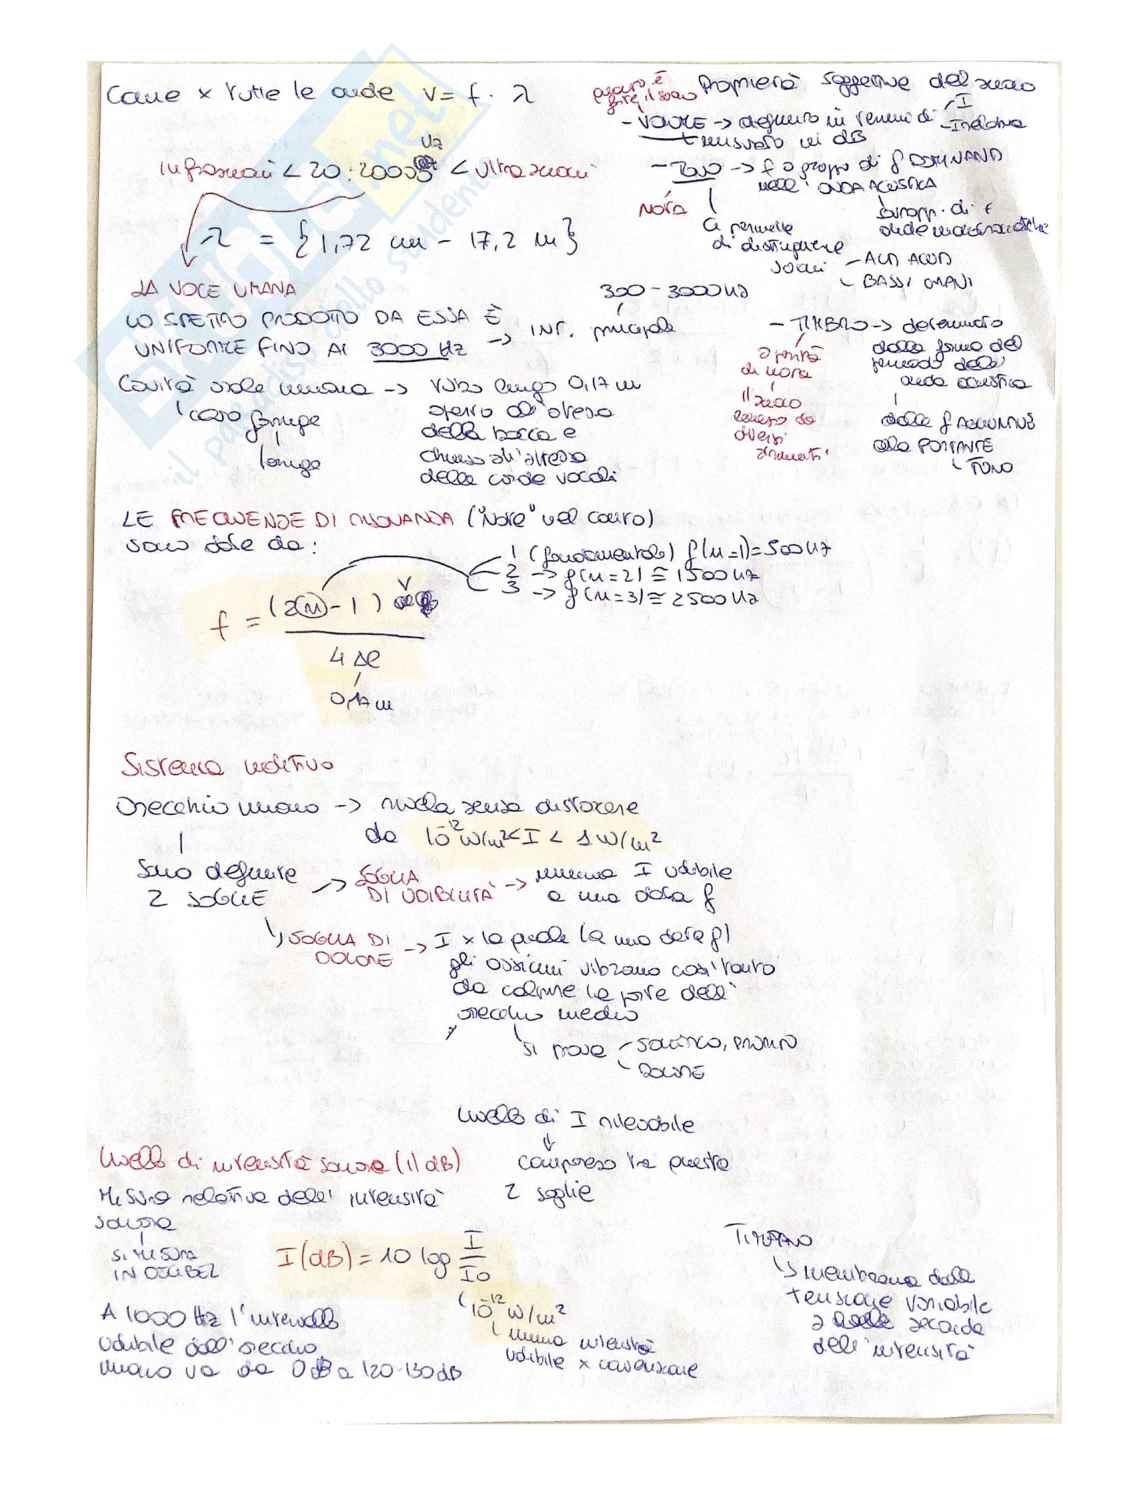 Come x tutte le onde v = f · λ
Infrasuoni < 20 : 20000 Hz < Ultrasuoni
λ = {1,72 cm - 17,2 m}
Proprietà soggettive del suono
quanto è forte il suono
- VOLUME -> definito in termini di I
- Intensità
misurato in dB
- TONO -> f o gruppo di f DOMINANTI
nell' ONDA ACUSTICA
NOTA
ci permette
di distinguere
suoni - ALTI ACUTI
- BASSI GRAVI
sovrapp. di
onde
LA VOCE UMANA
LO SPETTRO PRODOTTO DA ESSA È
UNIFORME FINO AI 3000 Hz -> int. principale
300 - 3000 Hz
- TIMBRO -> determinato
dalla forma del
periodo della
onda acustica
dalle f AGGIUNTIVE
alla PORTANTE
TONO
a parità
di nota
il suono
emesso da
diversi
strumenti
Cavità orale umana -> tubo lungo 0,17 m
aperto all'altezza
della bocca e
chiuso all'altezza
delle corde vocali
cavo faringe
laringe
LE FREQUENZE DI RISONANZA ("Note" nel canto)
sono date da:
1 (fondamentale) f(n=1) = 500 Hz
2 -> f(n=2) ≅ 1500 Hz
3 -> f(n=3) ≅ 2500 Hz
f = (2n - 1) v
4 Δl
0,17 m
Sistema uditivo
Orecchio umano -> rivela senza distorcere
da 10⁻¹² W/m² < I < 1 W/m²
Sono definite
2 SOGLIE
-> SOGLIA
DI UDIBILITÀ -> minima I udibile
a una data f
SOGLIA DI
DOLORE -> I x la quale (a una data f)
gli ossicini vibrano così tanto
da colpire la parte dell'
orecchio medio
si prova - SOLLETICO, PRURITO
- DOLORE
Livello di I rilevabile
compreso tra queste
2 soglie
Livello di intensità sonora (il dB)
Misura relativa dell' intensità
sonora
SI MISURA
IN DECIBEL
I(dB) = 10 log I
I0
10⁻¹² W/m²
minima intensità
udibile x convenzione
A 1000 Hz l'intervallo
udibile dall'orecchio
umano va da 0 dB a 120-130 dB
TIMPANO
membrana dalla
tensione variabile
a seconda
dell'intensità